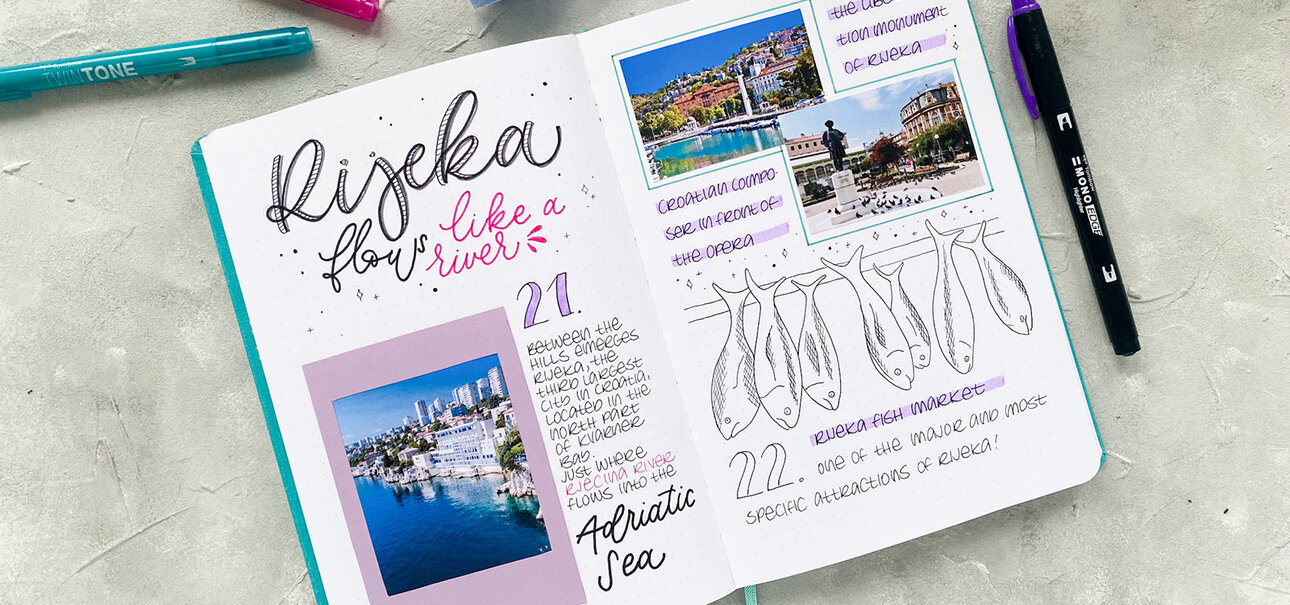 Tombow
TWINTONE
Rijeka
flows like a
river
21.
BETWEEN THE
HILLS EMERGES
RIJEKA, THE
THIRD LARGEST
CITY IN CROATIA,
LOCATED IN THE
NORTH PART
OF KVARNER
BAY.
JUST WHERE
RJECINA RIVER
FLOWS INTO THE
Adriatic
Sea
THE LIBERA-
TION MONUMENT
OF RIJEKA
CROATIAN COMPO-
SER IN FRONT OF
THE OPERA
RIJEKA FISH MARKET
22. ONE OF THE MAJOR AND MOST
SPECIFIC ATTRACTIONS OF RIJEKA!
MONO EDGE
Highlighter